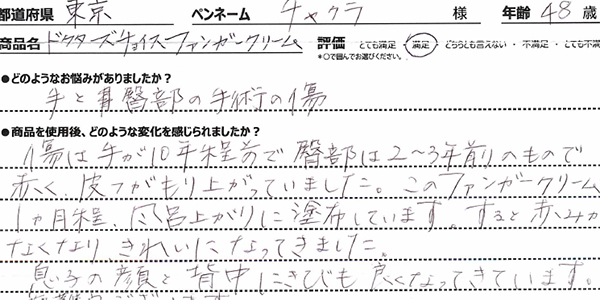 都道府県 東京 ペンネーム チャクラ 様 年齢 48 歳
商品名 ドクターズチョイスファンガークリーム 評価 とても満足・満足・どちらとも言えない・不満足・とても不満
*○で囲んでお選びください。
●どのようなお悩みがありましたか？
手と耳臀部の手術の傷
●商品を使用後、どのような変化を感じられましたか？
傷は手が10年程前で臀部は2〜3年前りのもので
赤く、皮フがもり上がっていました。このファンガークリーム
1ヵ月程、風呂上がりに塗布しています。すると赤みが
なくなり、きれいになってきました。
息子の顔と背中にきびも良くなってきています。